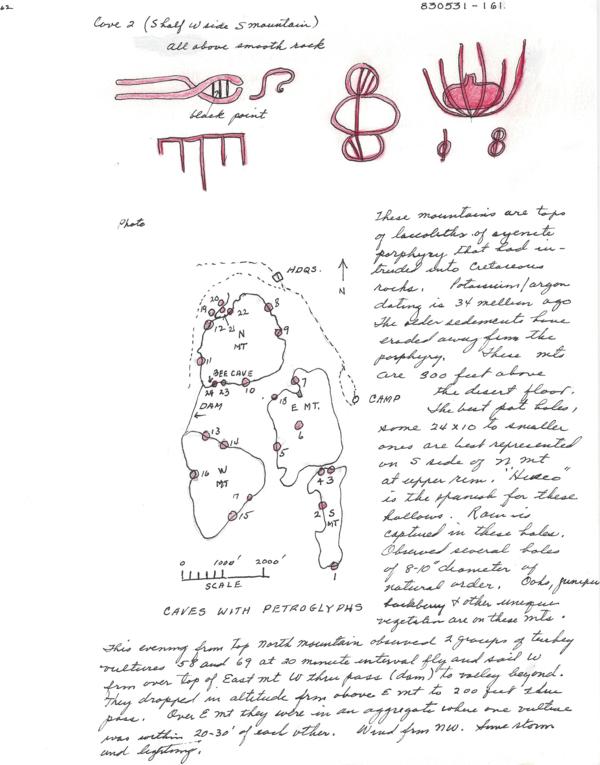 62
830531-161.
Cave 2 (S half W side S mountain)
All above smooth rock
black point
Photo
HDQS.
N
20
19
12
21
22
8
N
MT
9
11
BEE CAVE
24
23
10
DAM
7
18
E MT.
6
5
CAMP
13
14
16
W
MT
17
15
4 3
2
S
MT
1
0 1000' 2000'
SCALE
CAVES WITH PETROGLYPHS
These mountains are tops
of laccoliths of syenite
porphyry that had in-
truded into Cretaceous
rocks. Potassium/argon
dating is 34 million ago
The older sediments have
eroded away from the
porphyry. These mts
are 300 feet above
the desert floor.
The best pot holes,
some 24x10 to smaller
ones are best represented
on S side of N mt
at upper rim. "Hueco"
is the spanish for these
hollows. Rain is
captured in these holes.
Observed several holes
of 8-10" diameter of
natural order. Oaks, juniper
hackberry & other unique
vegetation are on these mts.
This evening from top North mountain observed 2 groups of turkey
vultures 58 and 69 at 20 minute interval fly and sail W
from over top of East mt W thru pass (dam) to valley beyond.
They dropped in altitude from above E mt to 200 feet thru
pass. Over E mt they were in an aggregate where one vulture
was within 20-30' of each other. Wind from NW. Some storm
and lightning.